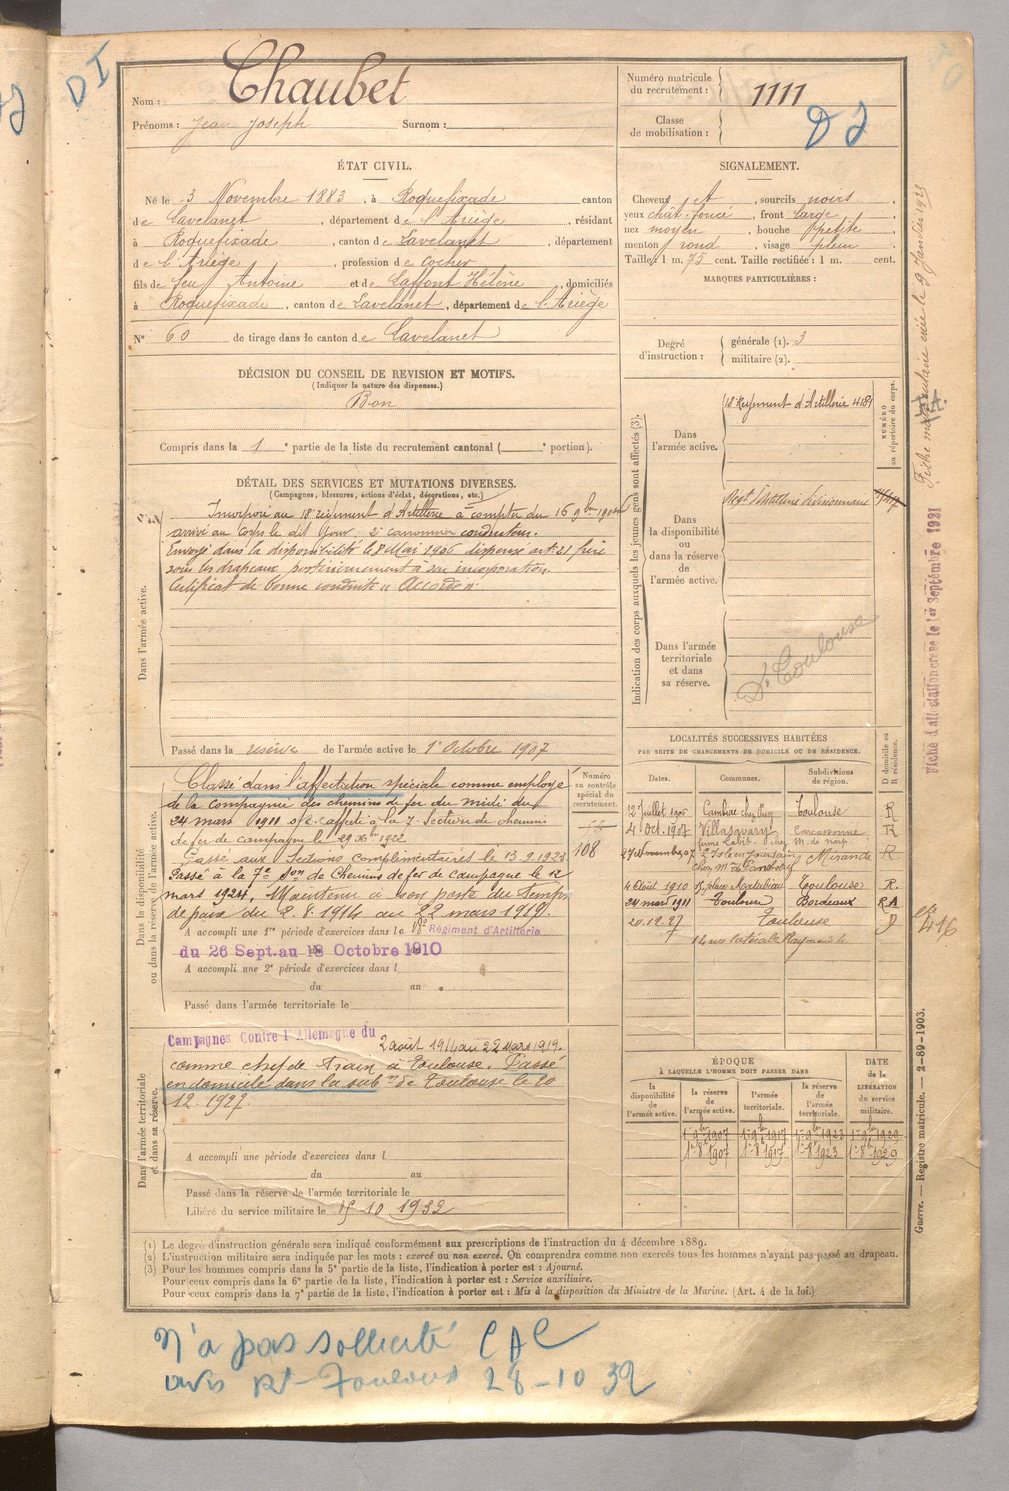 DI
Nom : Chaubet
Prénoms : Jean Joseph Surnom :
Numéro matricule du recrutement : 1111
Classe de mobilisation :
ÉTAT CIVIL.
Né le 3 Novembre 1883, à Roquefixade canton
de Lavelanet, département de l'Ariège, résidant
à Roquefixade, canton de Lavelanet, département
de l'Ariège, profession de Cocher
fils de feu Antoine et de Laffont Hélène, domiciliés
à Roquefixade, canton de Lavelanet, département de l'Ariège
N° 60 de tirage dans le canton de Lavelanet
SIGNALEMENT.
Cheveux et, sourcils noirs,
yeux chat. foncé, front large,
nez moyen, bouche petite,
menton rond, visage plein
Taille : 1 m. 75 cent. Taille rectifiée : 1 m. cent.
MARQUES PARTICULIÈRES :
Degré d'instruction : générale (1). 3
militaire (2).
DÉCISION DU CONSEIL DE REVISION ET MOTIFS.
(Indiquer la nature des dispenses.)
Bon
Compris dans la 1e partie de la liste du recrutement cantonal ( e portion).
DÉTAIL DES SERVICES ET MUTATIONS DIVERSES.
(Campagnes, blessures, actions d'éclat, décorations, etc.)
Dans l'armée active.
Incorporé au 18e régiment d'Artillerie à compter du 16 9bre 1904
arrivé au corps le dit jour, 2e canonnier conducteur.
Envoyé dans la disponibilité le 8 Mai 1906 dispensé art. 21 frère
sous les drapeaux postérieurement à son incorporation.
Certificat de bonne conduite "Accordé"
Passé dans la réserve de l'armée active le 1er Octobre 1907
Indication des corps auxquels les jeunes gens sont affectés (3).
NUMÉRO au répertoire du corps.
Dans l'armée active.
18 Régiment d'Artillerie 4181
Dans la disponibilité ou dans la réserve de l'armée active.
Regt d'Artillerie
Dans l'armée territoriale et dans sa réserve.
Toulouse
Dans la disponibilité ou dans la réserve de l'armée active.
Numéro au contrôle spécial du recrutement.
108
Classé dans l'affectation spéciale comme employé
de la compagnie des chemins de fer du midi du
24 mars 1911 s/c. affecté à la 7e Section de chemins
de fer de campagne le 29 Xbre 1922.
Passé aux Sections Complémentaires le 13.9.1923.
Passé à la 7e Son de Chemins de fer de campagne le 12
mars 1924. Maintenu à son poste du temps
de paix du 2.8.1914 au 22 mars 1919.
A accompli une 1re période d'exercices dans le 18e Régiment d'Artillerie
du 26 Sept. au 18 Octobre 1910
A accompli une 2e période d'exercices dans l
du au
Passé dans l'armée territoriale le
LOCALITÉS SUCCESSIVES HABITÉES
PAR SUITE DE CHANGEMENTS DE DOMICILE OU DE RÉSIDENCE.
Dates. Communes. Subdivisions de région. D domicile ou R résidence.
12 Juillet 1906 Toulouse R
4 Oct. 1907 Villasavary Carcassonne R
27 Novembre 07 L'Isle en Jourdain Mirande R
4 Août 1910 Toulouse R.
24 mars 1911 Toulouse Bordeaux RA
20.12.27 Toulouse D
Dans l'armée territoriale et dans sa réserve.
Campagnes Contre l'Allemagne du 2 août 1914 au 22 mars 1919.
comme chef de train à Toulouse. Passé
en domicile dans la subon de Toulouse le 20
12. 1927.
A accompli une période d'exercices dans l
du au
Passé dans la réserve de l'armée territoriale le
Libéré du service militaire le 15 10 1932
ÉPOQUE
À LAQUELLE L'HOMME DOIT PASSER DANS
la disponibilité de l'armée active. la réserve de l'armée active. l'armée territoriale. la réserve de l'armée territoriale. DATE de la LIBÉRATION du service militaire.
1er 9bre 1907 1er 9bre 1917 1er 9bre 1923 1er 9bre 1929
1er 8bre 1907 1er 8bre 1917 1er 8bre 1923 1er 8bre 1929
(1) Le degré d'instruction générale sera indiqué conformément aux prescriptions de l'instruction du 4 décembre 1889.
(2) L'instruction militaire sera indiquée par les mots : exercé ou non exercé. On comprendra comme non exercés tous les hommes n'ayant pas passé au drapeau.
(3) Pour les hommes compris dans la 5e partie de la liste, l'indication à porter est : Ajourné.
Pour ceux compris dans la 6e partie de la liste, l'indication à porter est : Service auxiliaire.
Pour ceux compris dans la 7e partie de la liste, l'indication à porter est : Mis à la disposition du Ministre de la Marine. (Art. 4 de la loi.)
N'a pas sollicité CAC
avis 28-10 32
Fiche matriculaire créée le 9 Janvier 1923
Fiche d'affectation créée le 1er Septembre 1921
416
Guerre. — Registre matricule. — 2-89-1903.